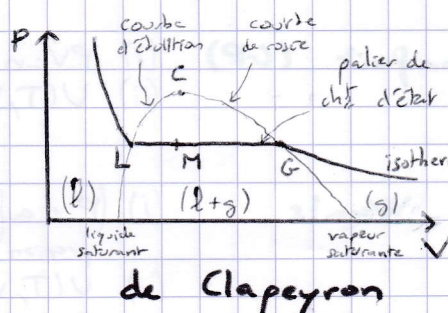 P
courbe
d'ébullition
courbe
de rosée
palier de
chgt d'état
C
L
M
G
isother
(l)
(l+g)
(g)
liquide
saturant
vapeur
saturante
V
de Clapeyron